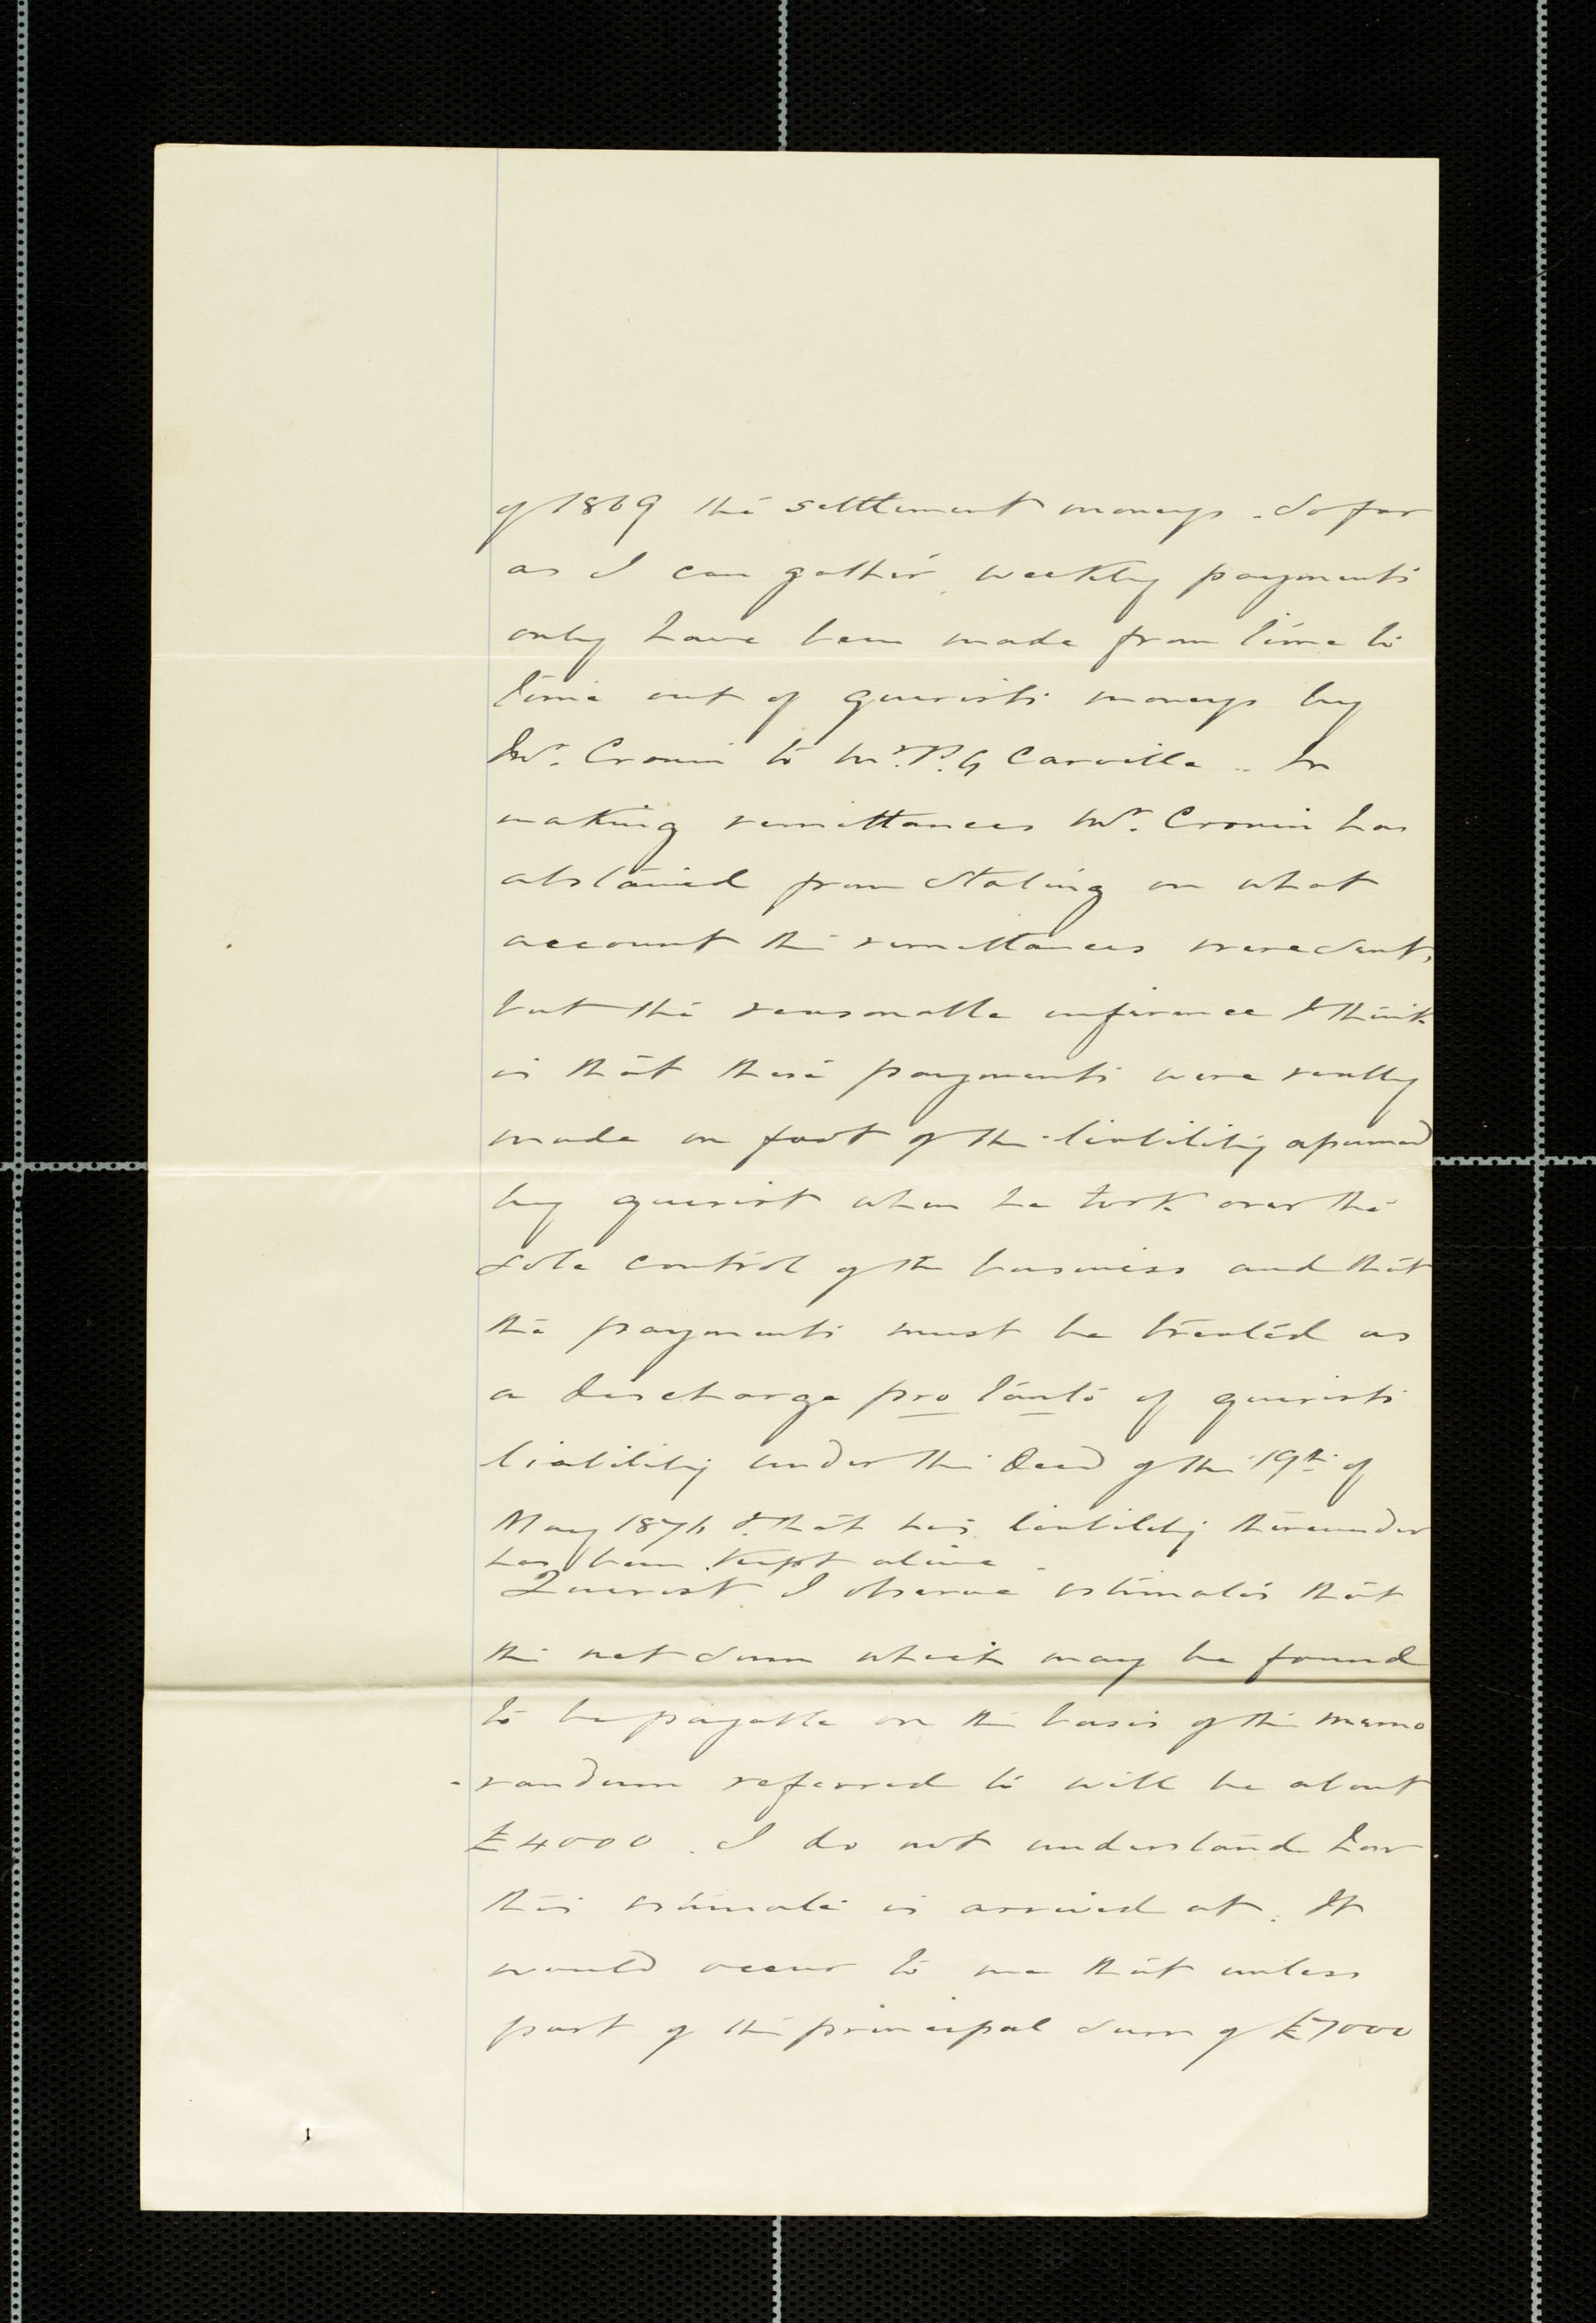 of 1869 the settlement moneys. So far
as I can gather, weekly payments
only have been made from time to
time out of querists moneys by
Mr. Cronin to Mr. P. G Carville .. In
making remittances Mr. Cronin has
abstained from stating on what
account the remittances were sent,
but the reasonable inference I think
is that these payments were really
made on foot of the liability assumed
by querist when he took over the
sole control of the business and that
the payments must be treated as
a discharge pro tanto of querists
liability under the Deed of the 19th of
May 1876 & that his liability thereunder
has been kept alive.
Querist I observe estimates that
the net sum which may be found
to be payable on the basis of the memo
-randum referred to will be about
£4000. I do not understand how
this estimate is arrived at. It
would occur to me that unless
part of the principal sum of £7000